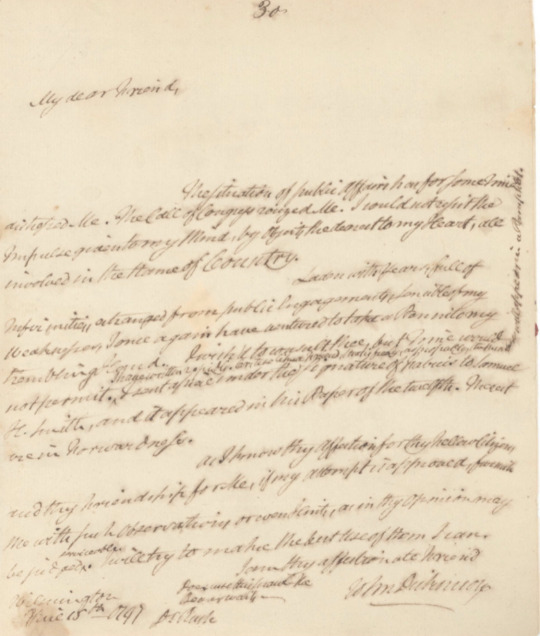 30
My dear Friend,
The situation of public affairs has for some time
afflicted Me. The Call of Congress rouzed Me. I could not resist the
Impulse given to my Mind, by Objects the dearest to my Heart, all
involved in the Name of Country.
Laden with Years, full of
Infirmities, estranged from public Engagements, sensible of my
Weakness, I once again have ventured to take a Pen into my
trembling Hand. I wish'd to
not permit. I sent a piece under the signature of Fabius to Samuel
H. Smith, and it appeared in his Paper of the twelfth. The rest
are in Forwardness.
As I know thy affection for thy fellow Citizens,
and thy Friendship for Me, if my attempt is approved, furnish
Me with such Observations or as in thy opinion may
be I will try to make the best use of them I can.
I am thy affectionate Friend
John Dickinson
Wilmington
June 15th 1797